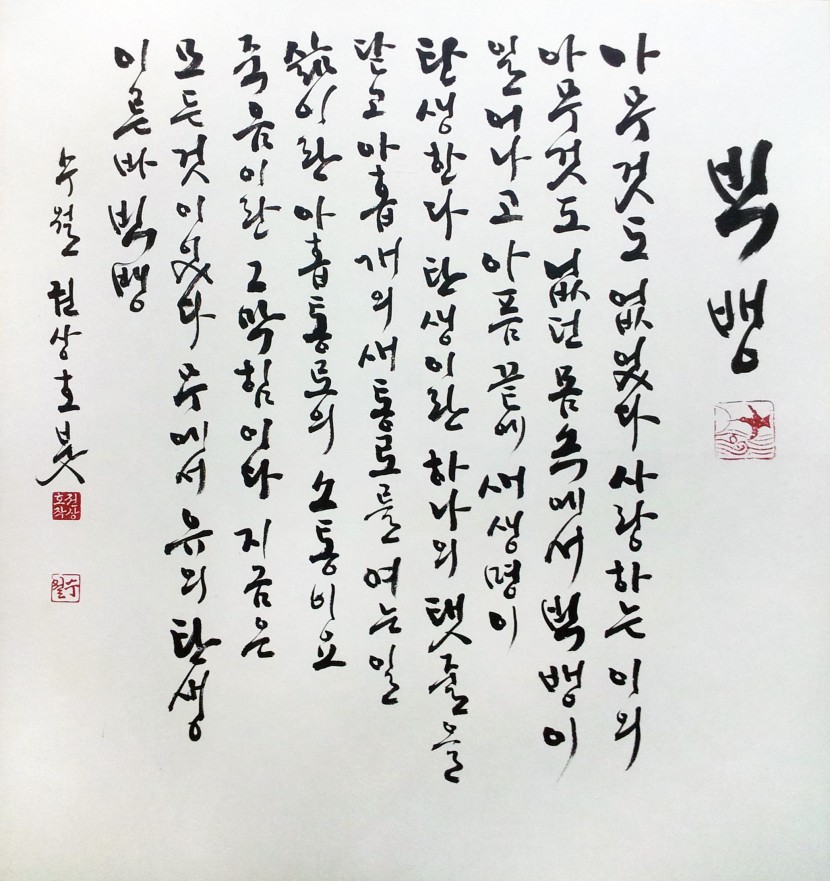 빅뱅
아무것도 없었다 사랑하는 이의
아무것도 없던 몸속에서 빅뱅이
일어나고 아픔 끝에 새 생명이
탄생한다 탄생이란 하나의 탯줄을
닫고 아홉 개의 새 통로를 여는 일
삶이란 아홉 통로의 소통비요
죽음이란 그 막힘이다 지금은
모든 것이 있다 무에서 유의 탄생
이른바 빅뱅
수월 권상호 붓
권상호작
수월